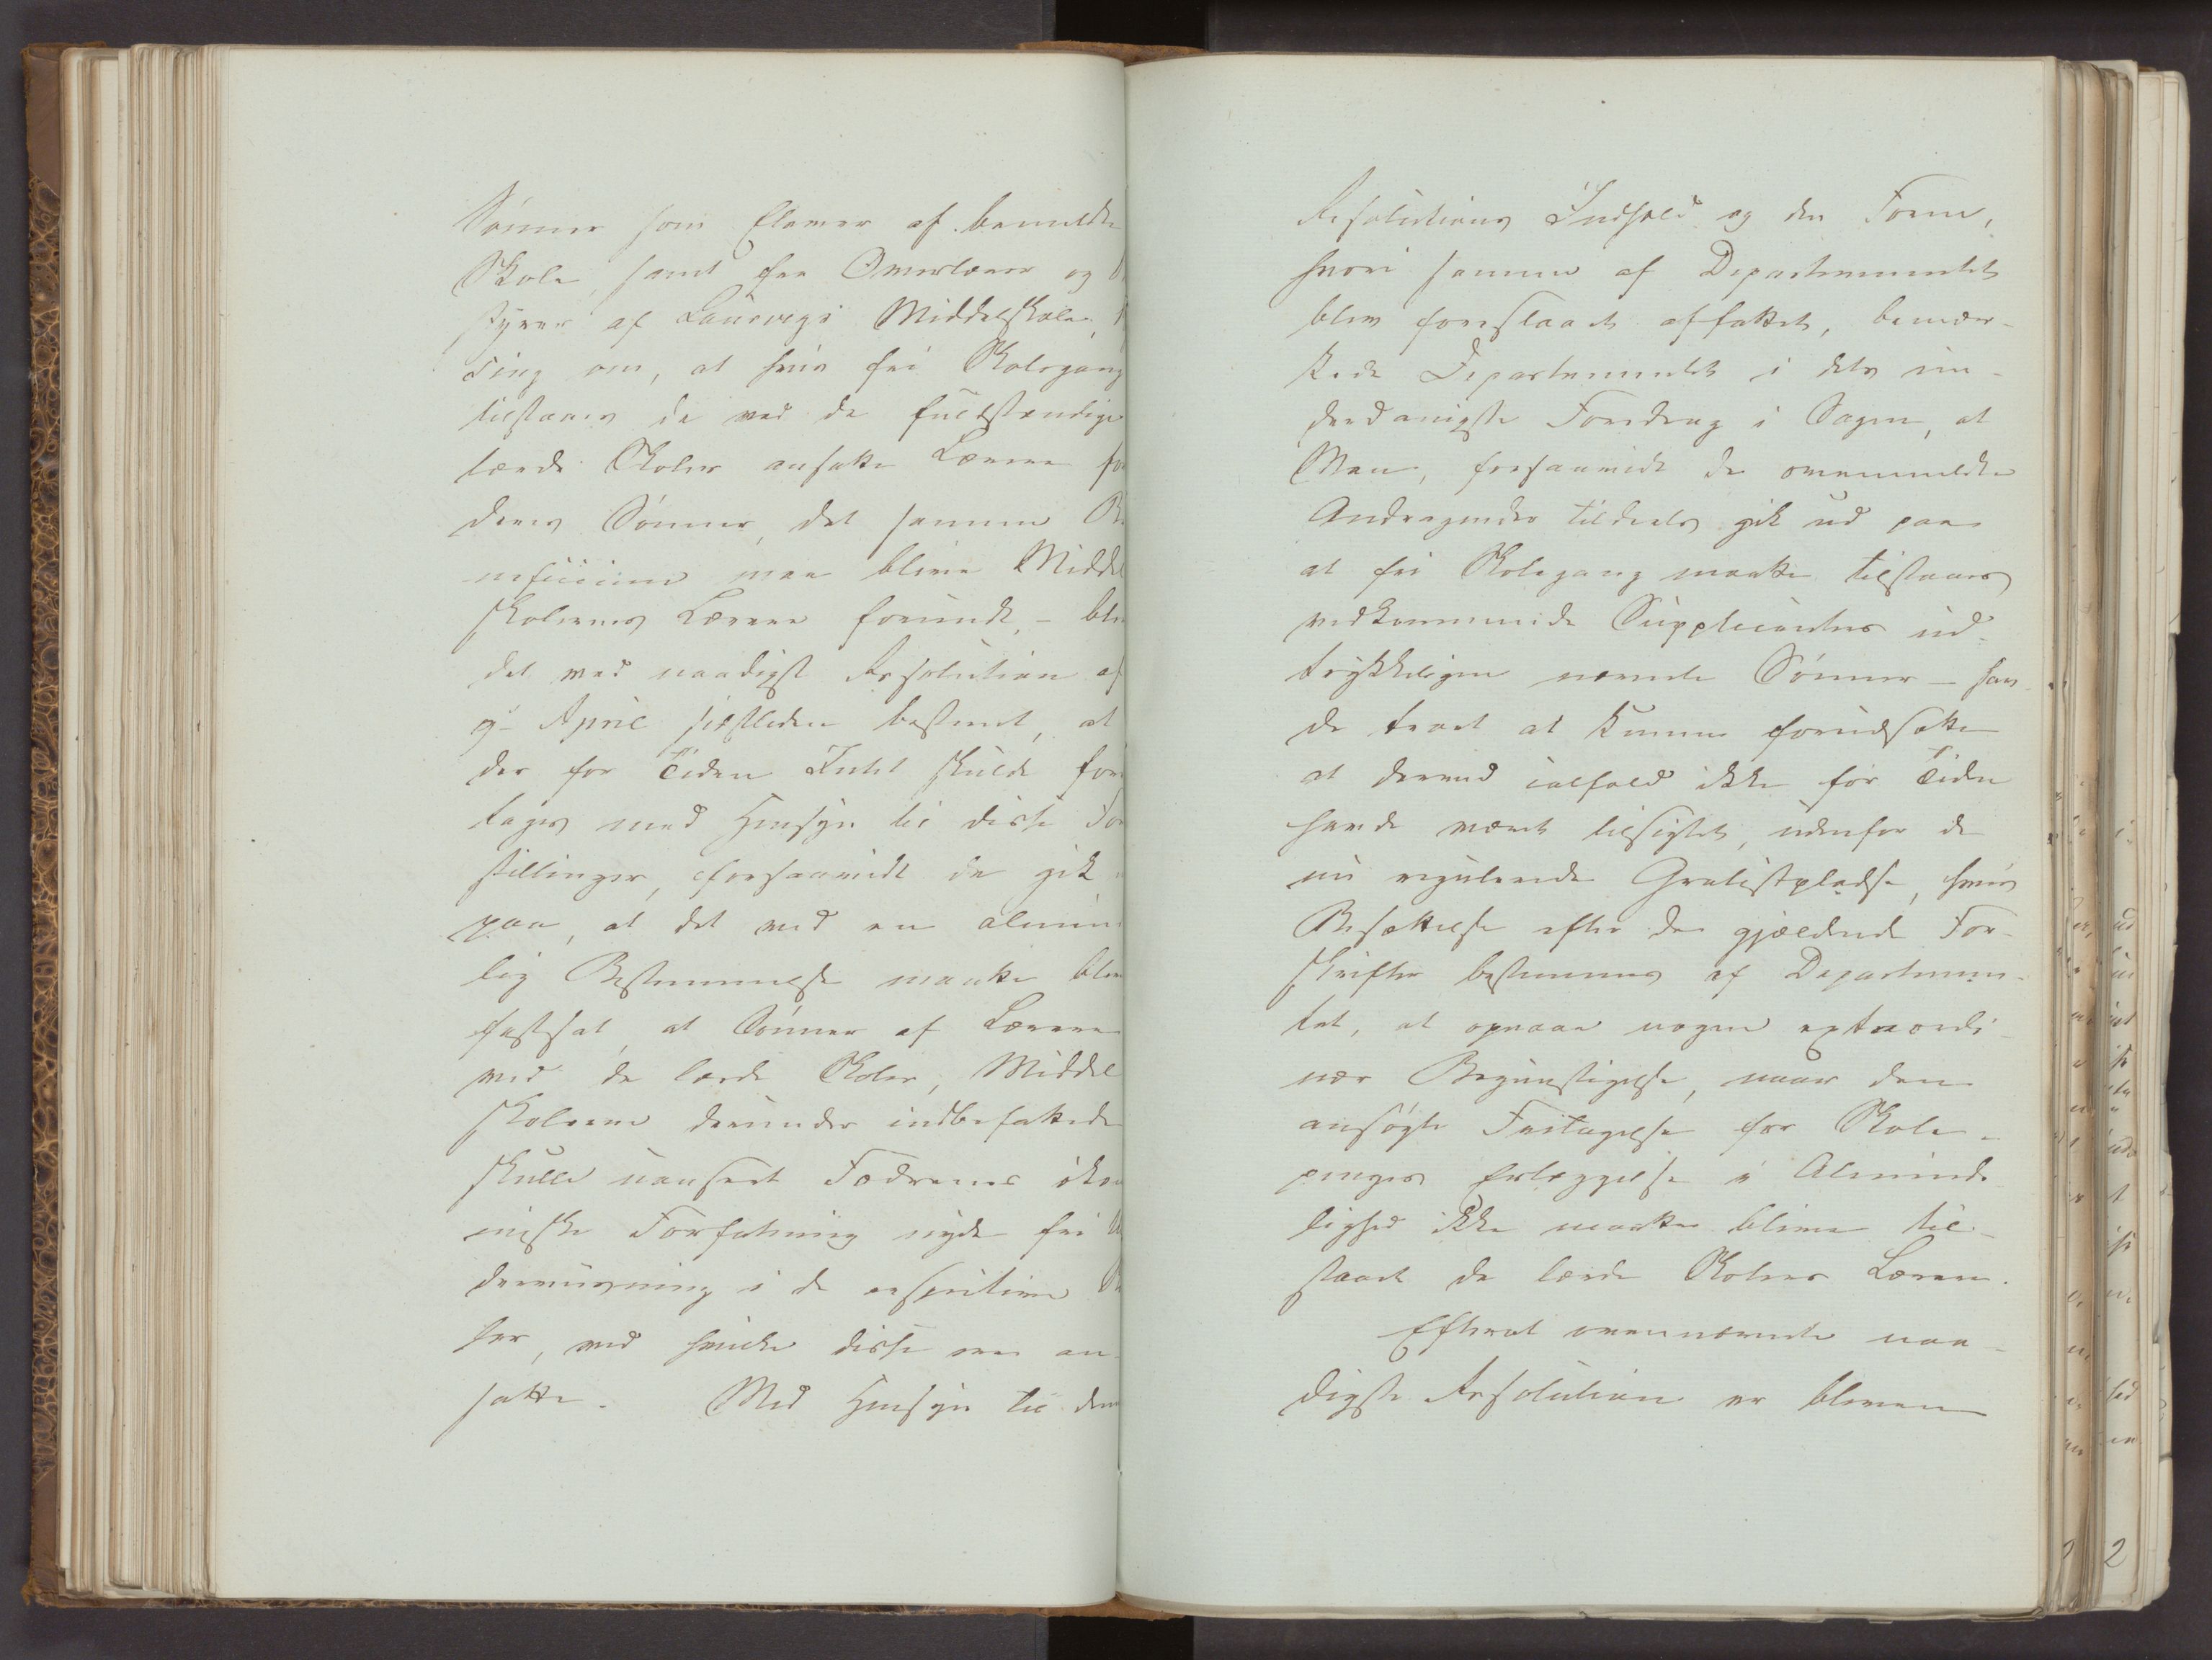 Sønner som Elever af bemeldte
Skole, samt fra Overlærer og
styrer af Laurvigs Middelskole,
ding om, at hvis fri Skolegang
tilstaaes de ved de fuldstændige
lærde Skoler ansatte Lærere for
deres Sønner, det samme Be
neficium maa blive Middel
skolernes Lærere forundt, - blev
det ved naadigst Resolution af
9de April sidstleden bestemt, at
der for Tiden Intet skulde fore
tages med Hensyn til disse Fore
stillinger, forsaavidt de gik
paa, at det ved en almin
lig Bestemmelse maatte blive
fastsat, at Sønner af Lærere
ved de lærde Skoler, Middel
skolerne derunder indbefattede
skulle uanseet Fædrenes øko
miske Forfatning nyde fri U
dervisning i de respective Sko
ler, ved hvilke disse ere an-
satte. Med Hensyn til denne
Resolutions Indhold og den Form,
hvori samme af Departementet
blev foreslaaet affattet, bemær-
kede Departementet i dets un-
derdanigste Foredrag i Sagen, at
Man, forsaavidt de ovenmeldte
Andragender tildeels gik ud paa
at fri Skolegang maatte tilstaaes
vedkommende Supplicanters ud-
trykkeligen nævnte Sønner - hav-
de troet at kunne forudsætte
at derved ialfald ikke for Tiden
havde været tilsigtet, udenfor de
nu regulerede Gratistpladse, hvis
Besættelse efter de gjældende For-
skrifter bestemmes af Departemen-
tet, at opnaae nogen extraordi-
nær Begunstigelse, naar den
ansøgte Fritagelse for Skole-
penges Erlæggelse i Alminde-
lighed ikke maatte blive til-
staaet de lærde Skolers Lærere.
Efterat ovennævnte naa-
digste Resolution er bleven
2